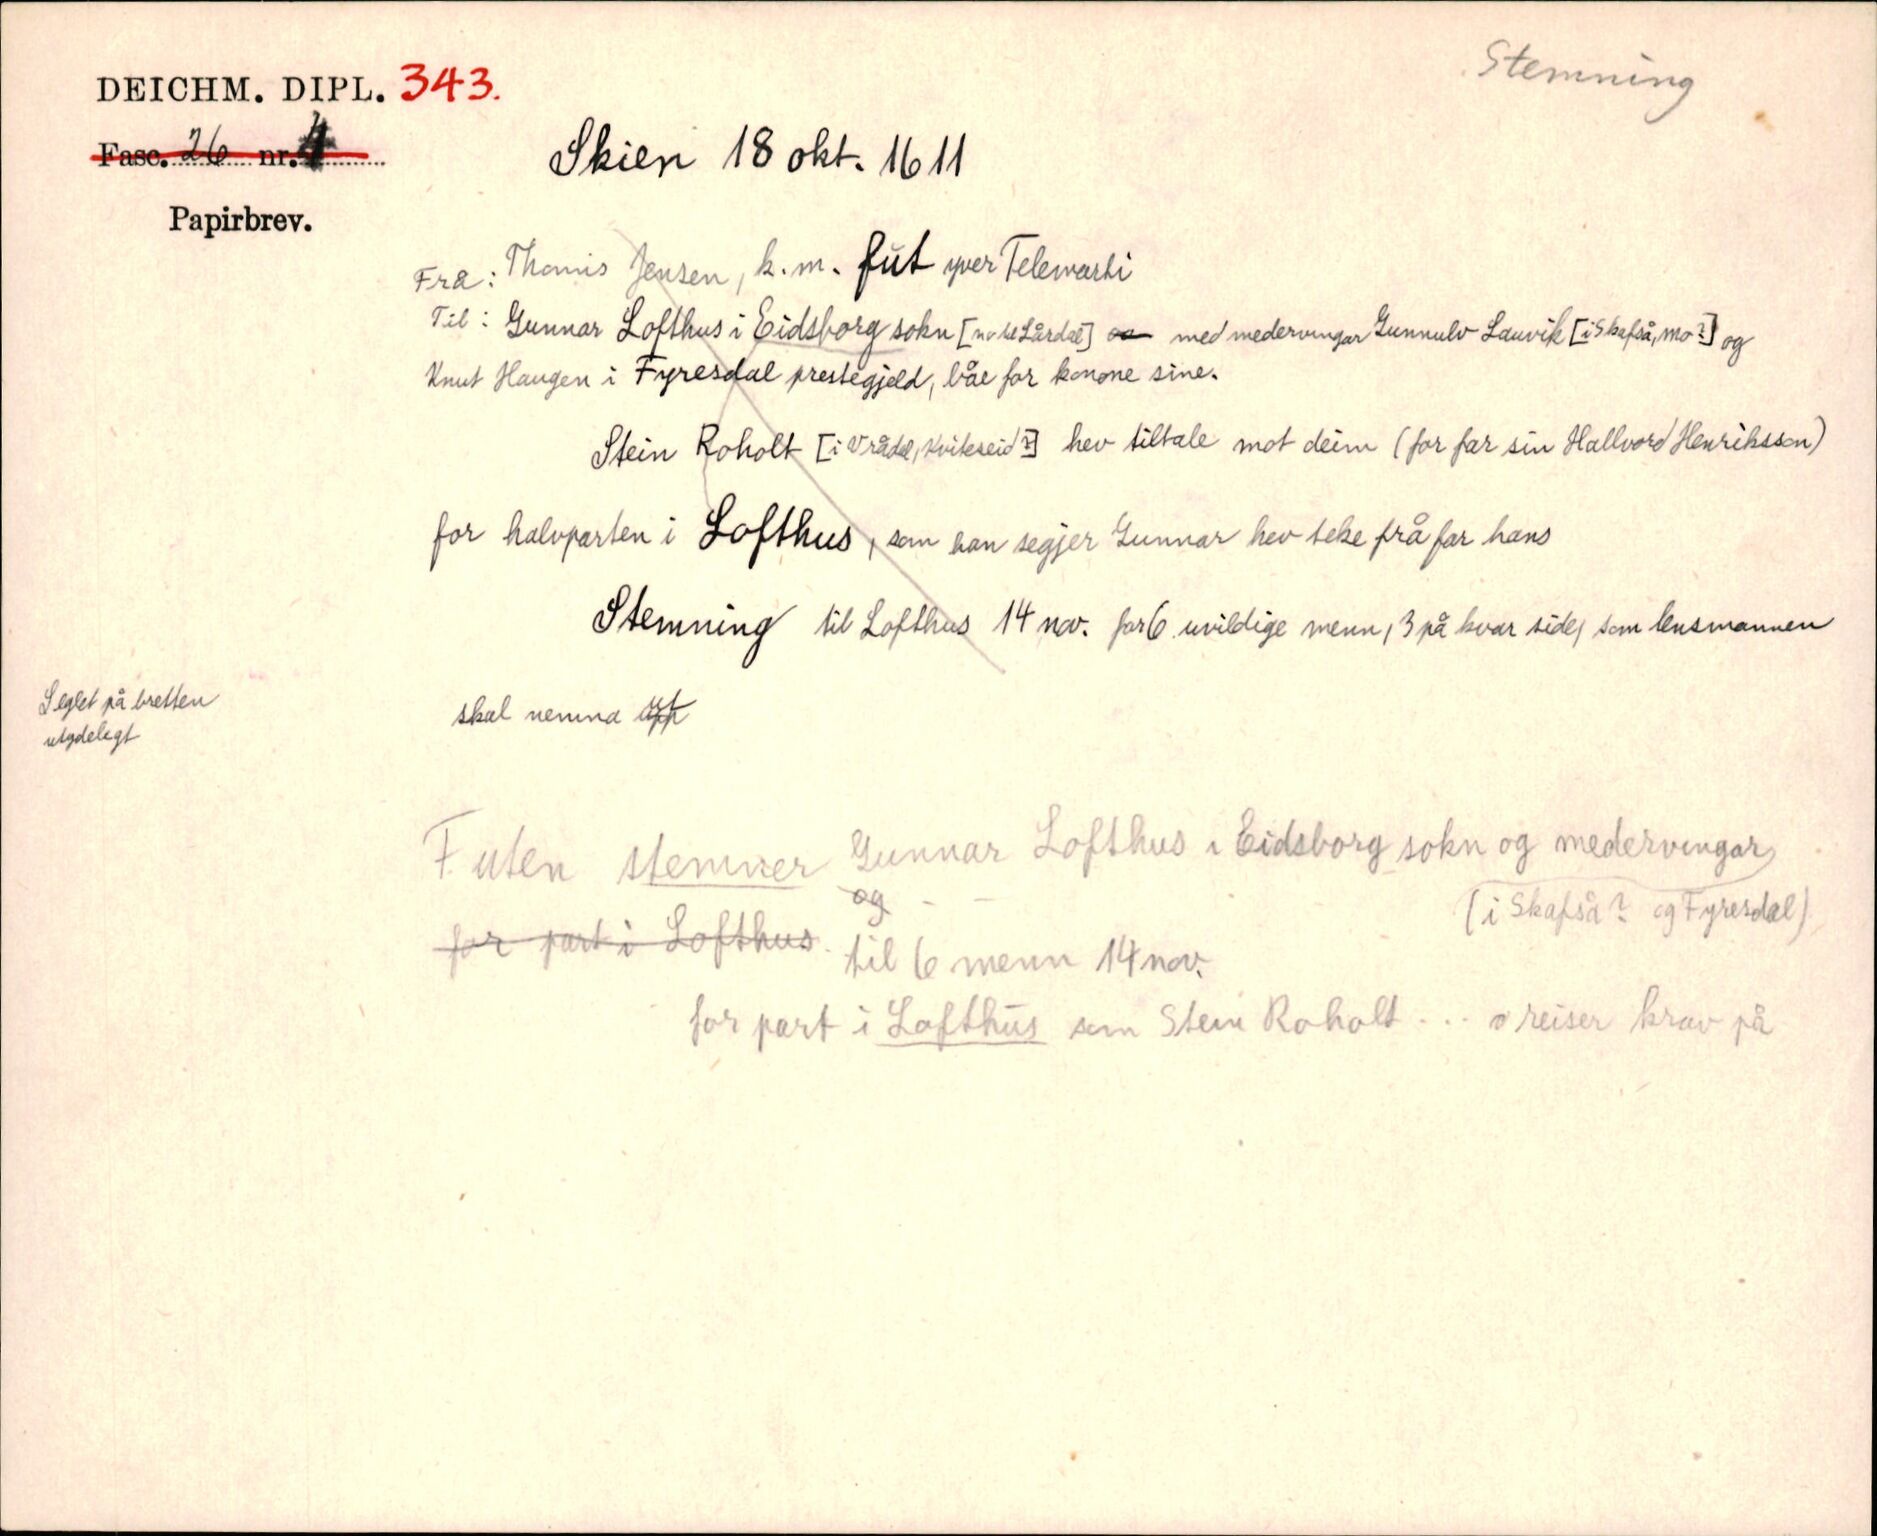 DEICHM. DIPL. 343.
Stemning
Fasc. 26 nr. 4
Skien 18 okt. 1611
Papirbrev.
Frå: Thomis Jensen, k.m. fut yver Telemarki
Til: Gunnar Lofthus i Eidsborg sokn [no til Lårdal] med medervingar Gunnulv Lauvik [i Skafså, Mo?] og
Knut Haugen i Fyresdal prestegjeld, båe for konone sine.
Stein Roholt [i Vrådal, Kviteseid?] hev tiltale mot deim (for far sin Hallvord Henriksson)
for halvparten i Lofthus, som han segjer Gunnar hev teke frå far hans
Stemning til Lofthus 14 nov. for 6 uvildige menn, 3 på kvar side, som lensmannen
skal nemna
Seglet på bretten
utydelegt
Futen stemner Gunnar Lofthus i Eidsborg sokn og medervingar
og
(i Skafså? og Fyresdal)
for part i Lofthus
til 6 menn 14 nov.
for part i Lofthus som Stein Roholt ... reiser krav på